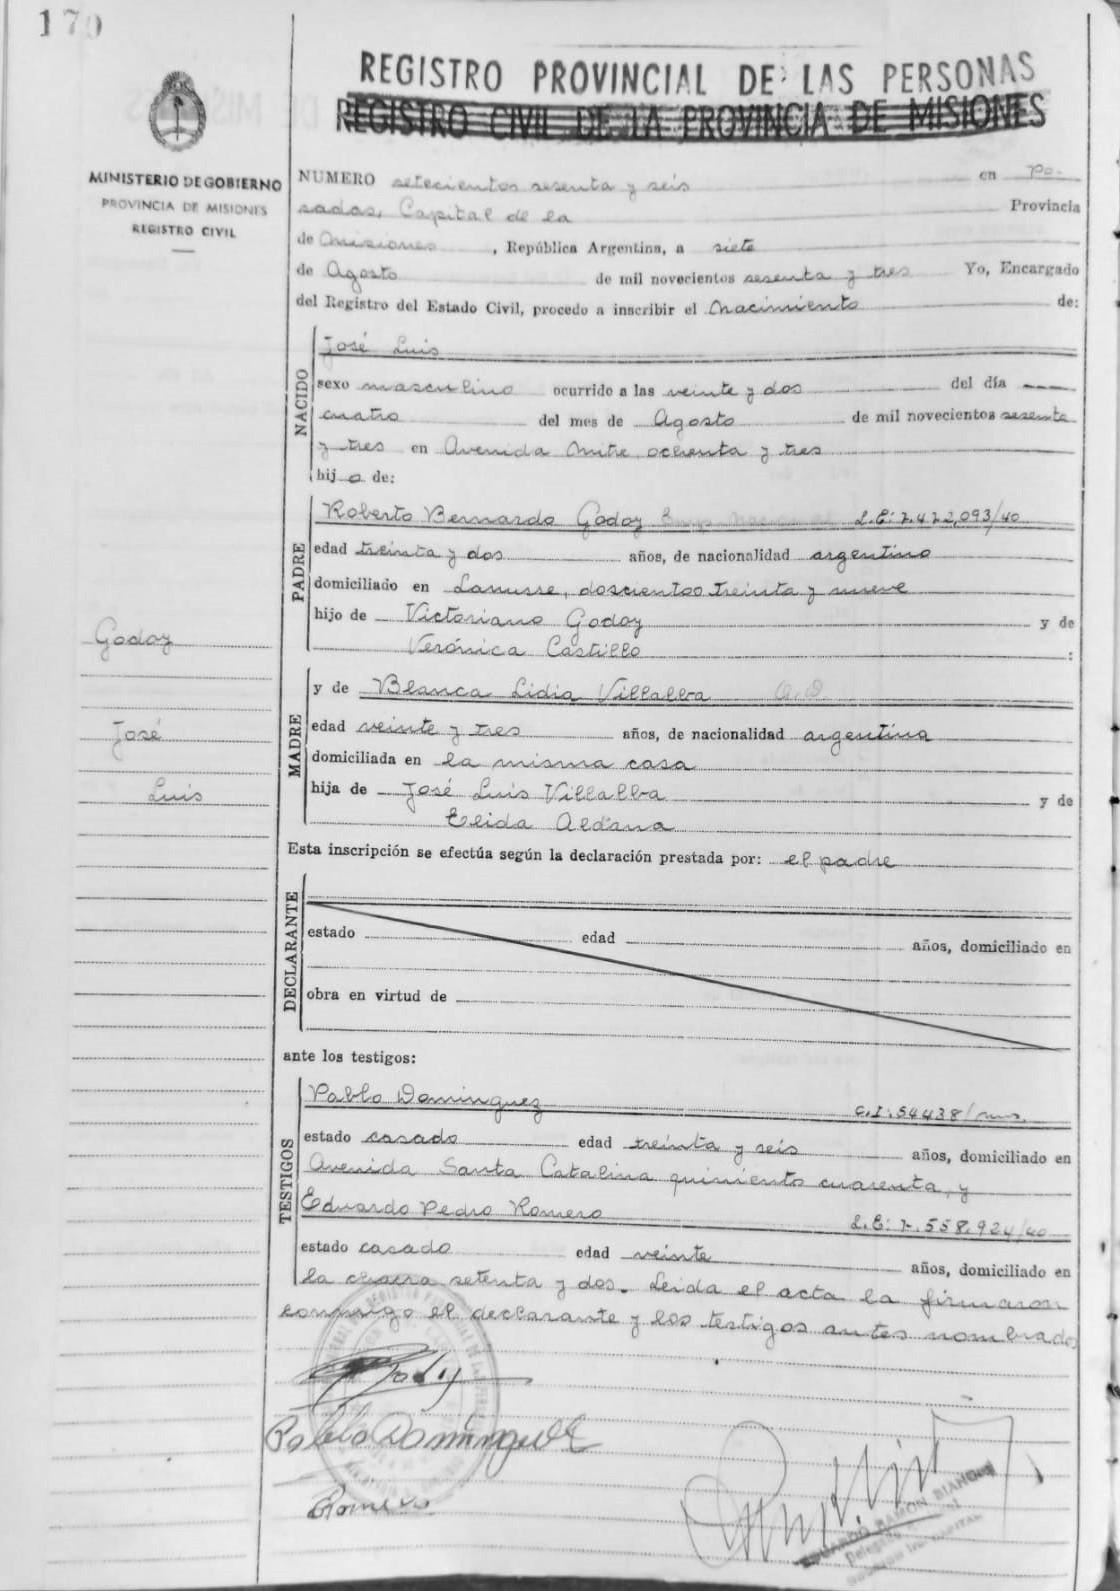 170
REGISTRO PROVINCIAL DE LAS PERSONAS
REGISTRO CIVIL DE LA PROVINCIA DE MISIONES
MINISTERIO DE GOBIERNO
PROVINCIA DE MISIONES
REGISTRO CIVIL
NUMERO setecientos sesenta y seis en Po-
sadas, Capital de la Provincia
de Misiones, República Argentina, a siete
de Agosto de mil novecientos sesenta y tres Yo, Encargado
del Registro del Estado Civil, procedo a inscribir el Nacimiento de:
NACIDO
José Luis
sexo masculino ocurrido a las veinte y dos del día
cuatro del mes de Agosto de mil novecientos sesenta
y tres en Avenida Mitre ochenta y tres
hijo de:
PADRE
Roberto Bernardo Godoy L.E: 7.472,093/40
edad treinta y dos años, de nacionalidad argentino
domiciliado en Lanusse, doscientos treinta y nueve
hijo de Victoriano Godoy y de
Verónica Castillo :
Godoy
José
Luis
MADRE
y de Blanca Lidia Villalba
edad veinte y tres años, de nacionalidad argentina
domiciliada en la misma casa
hija de José Luis Villalba y de
Elida Aldana
Esta inscripción se efectúa según la declaración prestada por: el padre
DECLARANTE
estado edad años, domiciliado en
obra en virtud de
ante los testigos:
TESTIGOS
Pablo Dominguez C.I: 54438/ms.
estado casado edad treinta y seis años, domiciliado en
Avenida Santa Catalina quiniento cuarenta, y
Eduardo Pedro Romero L.E: 7.558.924/40
estado casado edad veinte años, domiciliado en
la chacra setenta y dos. Leida el acta la firmaron
conmigo el declarante y los testigos antes nombrados
Pablo Dominguez
Romero
EDUARDO RAMON BIANCHI